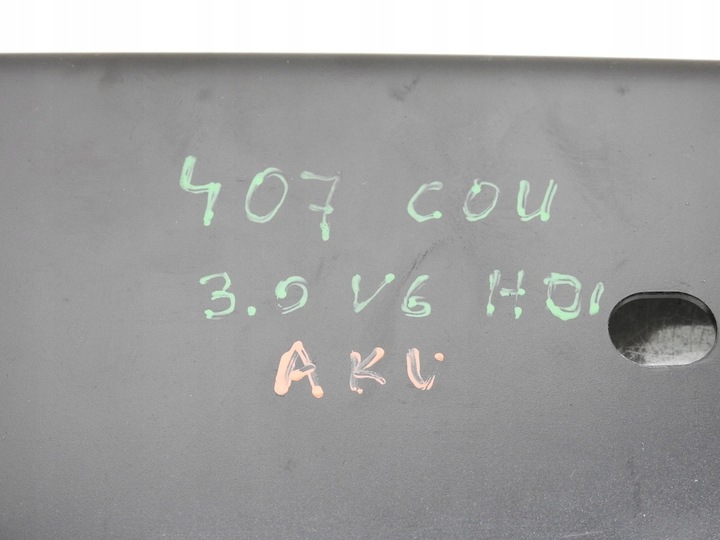 407 COU
3.0 V6 HDI
AKU